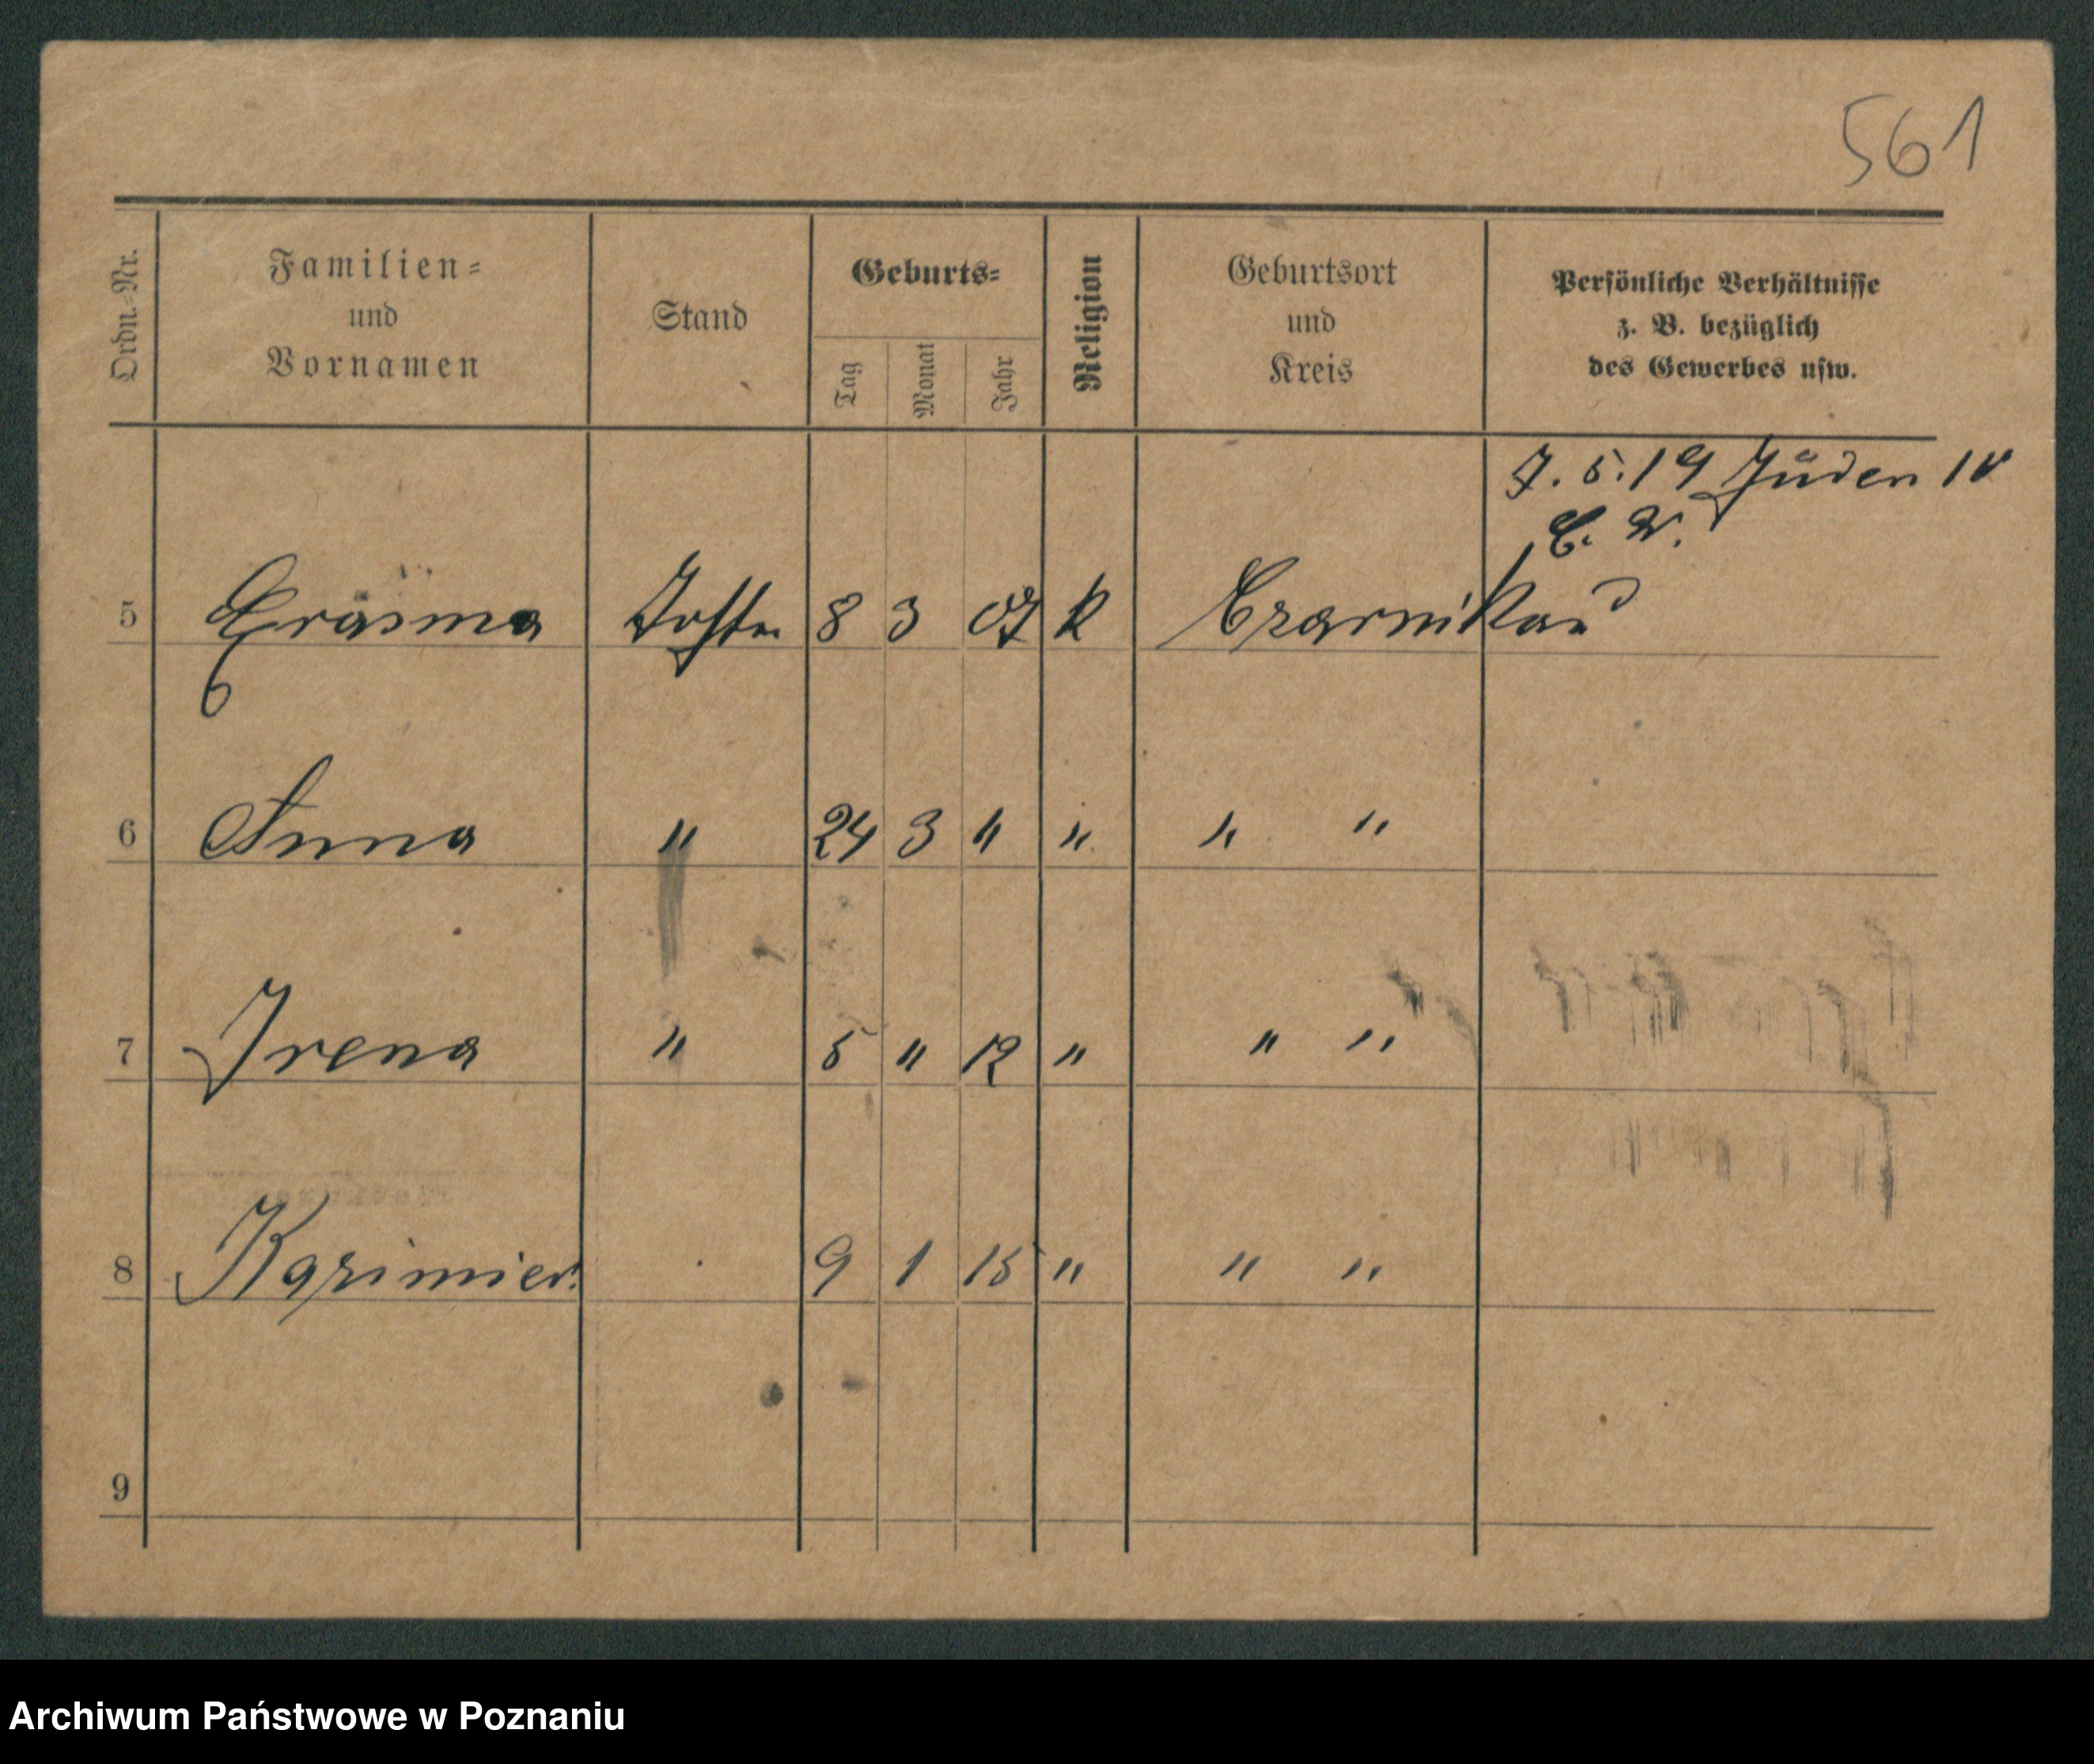 561
Ordn.-Nr.
Familien-
und
Vornamen
Stand
Geburts-
Tag
Monat
Jahr
Religion
Geburtsort
und
Kreis
Persönliche Verhältnisse
z. B. bezüglich
des Gewerbes usw.
7. 5. 19 Jüden 10
5 Erasma 8 3 07 k Czarnikau
6 Anna " 24 3 " " " "
7 Irena " 5 " 12 " " "
8 Kazimier. 9 1 15 " " "
9
Archiwum Państwowe w Poznaniu